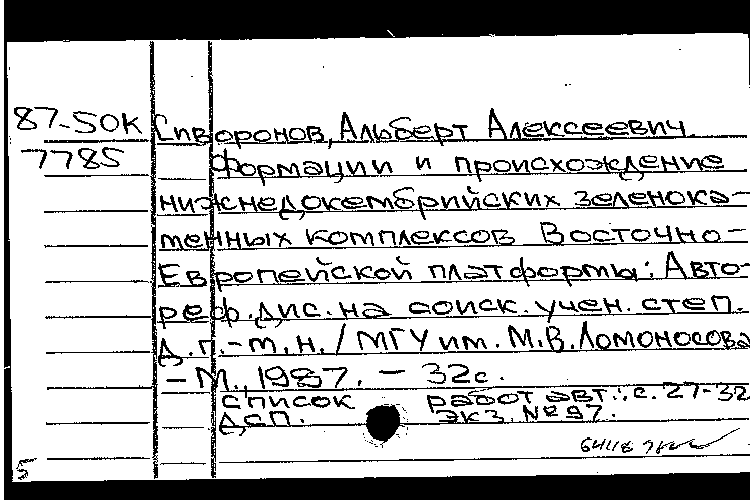 87-50К Сиворонов, Альберт Алексеевич.
7785 Формации и происхождение
нижнедокембрийских зеленока-
менных комплексов Восточно-
Европейской платформы: Авто-
реф. дис. на соиск. учен. степ.
д.г.-м.н. / МГУ им. М.В. Ломоносова
– М., 1987. – 32с.
список работ авт.: с. 27-32
ДСП. экз. №97.
5